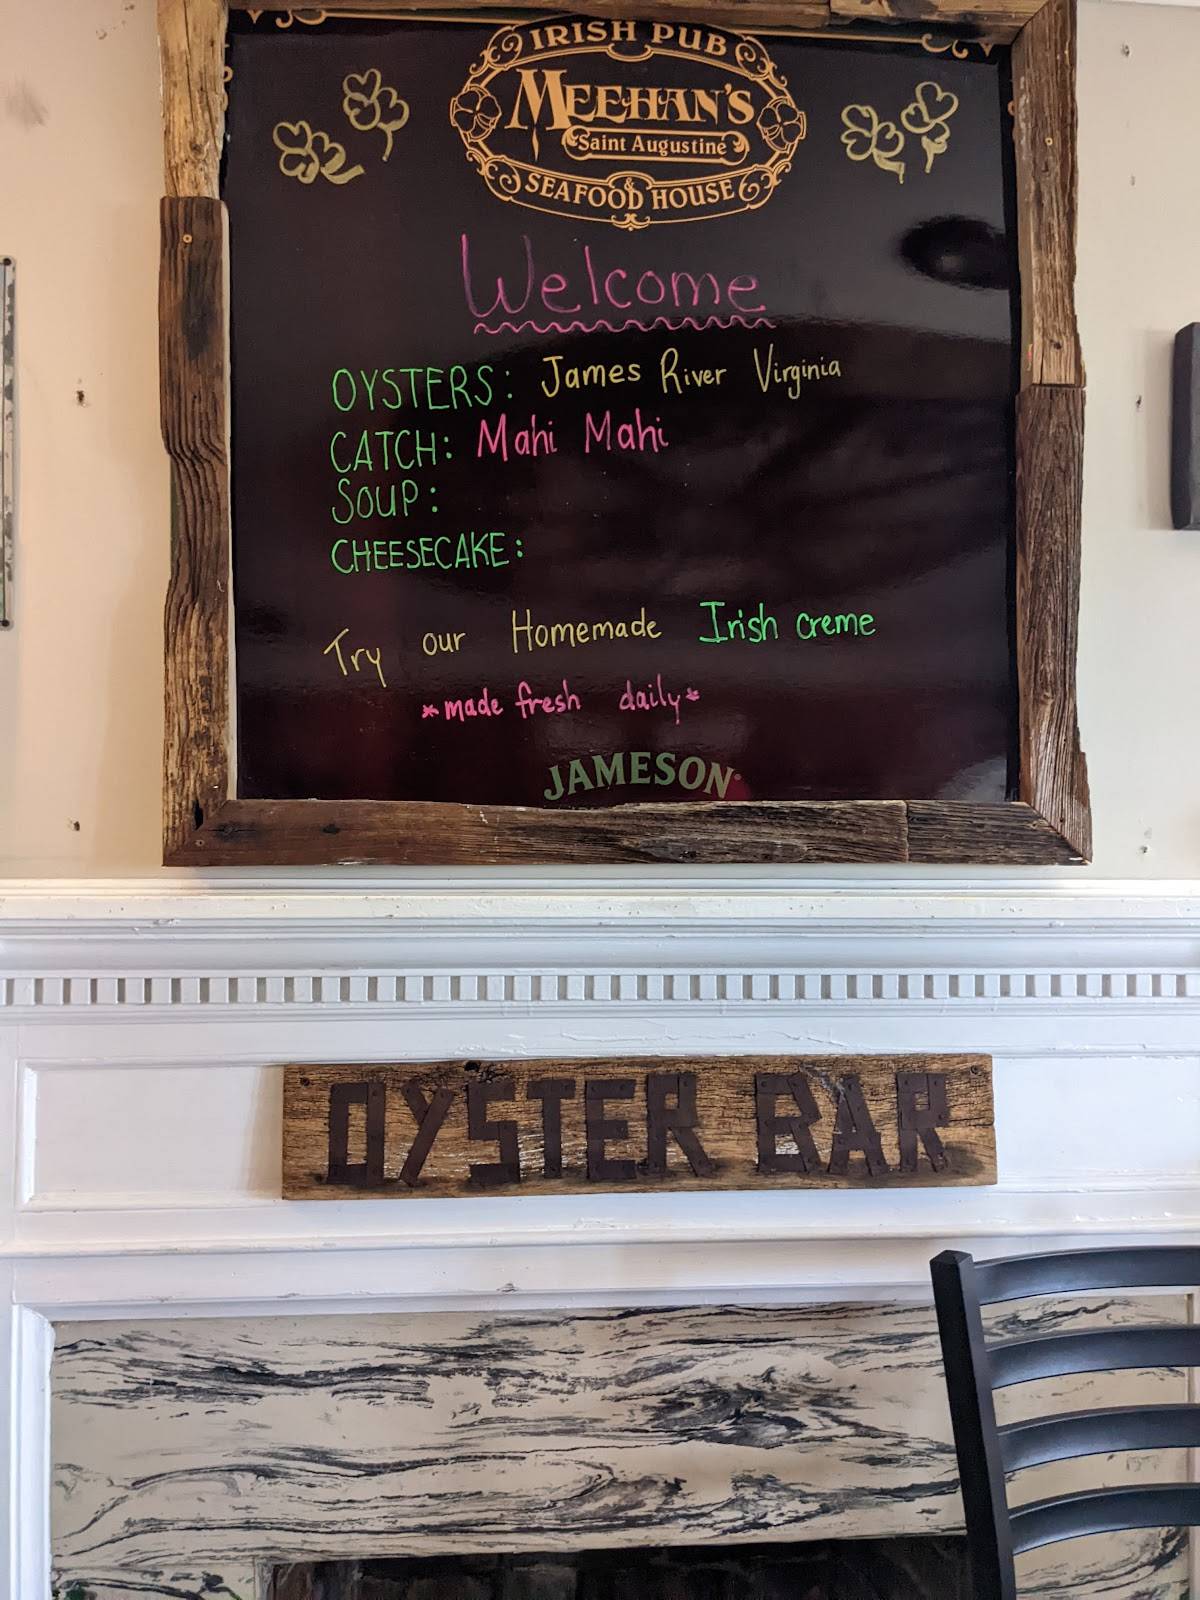 IRISH PUB
MEEHAN'S
Saint Augustine
&
SEAFOOD HOUSE
Welcome
OYSTERS: James River Virginia
CATCH: Mahi Mahi
SOUP:
CHEESECAKE:
Try our Homemade Irish creme
*made fresh daily*
JAMESON®
OYSTER BAR